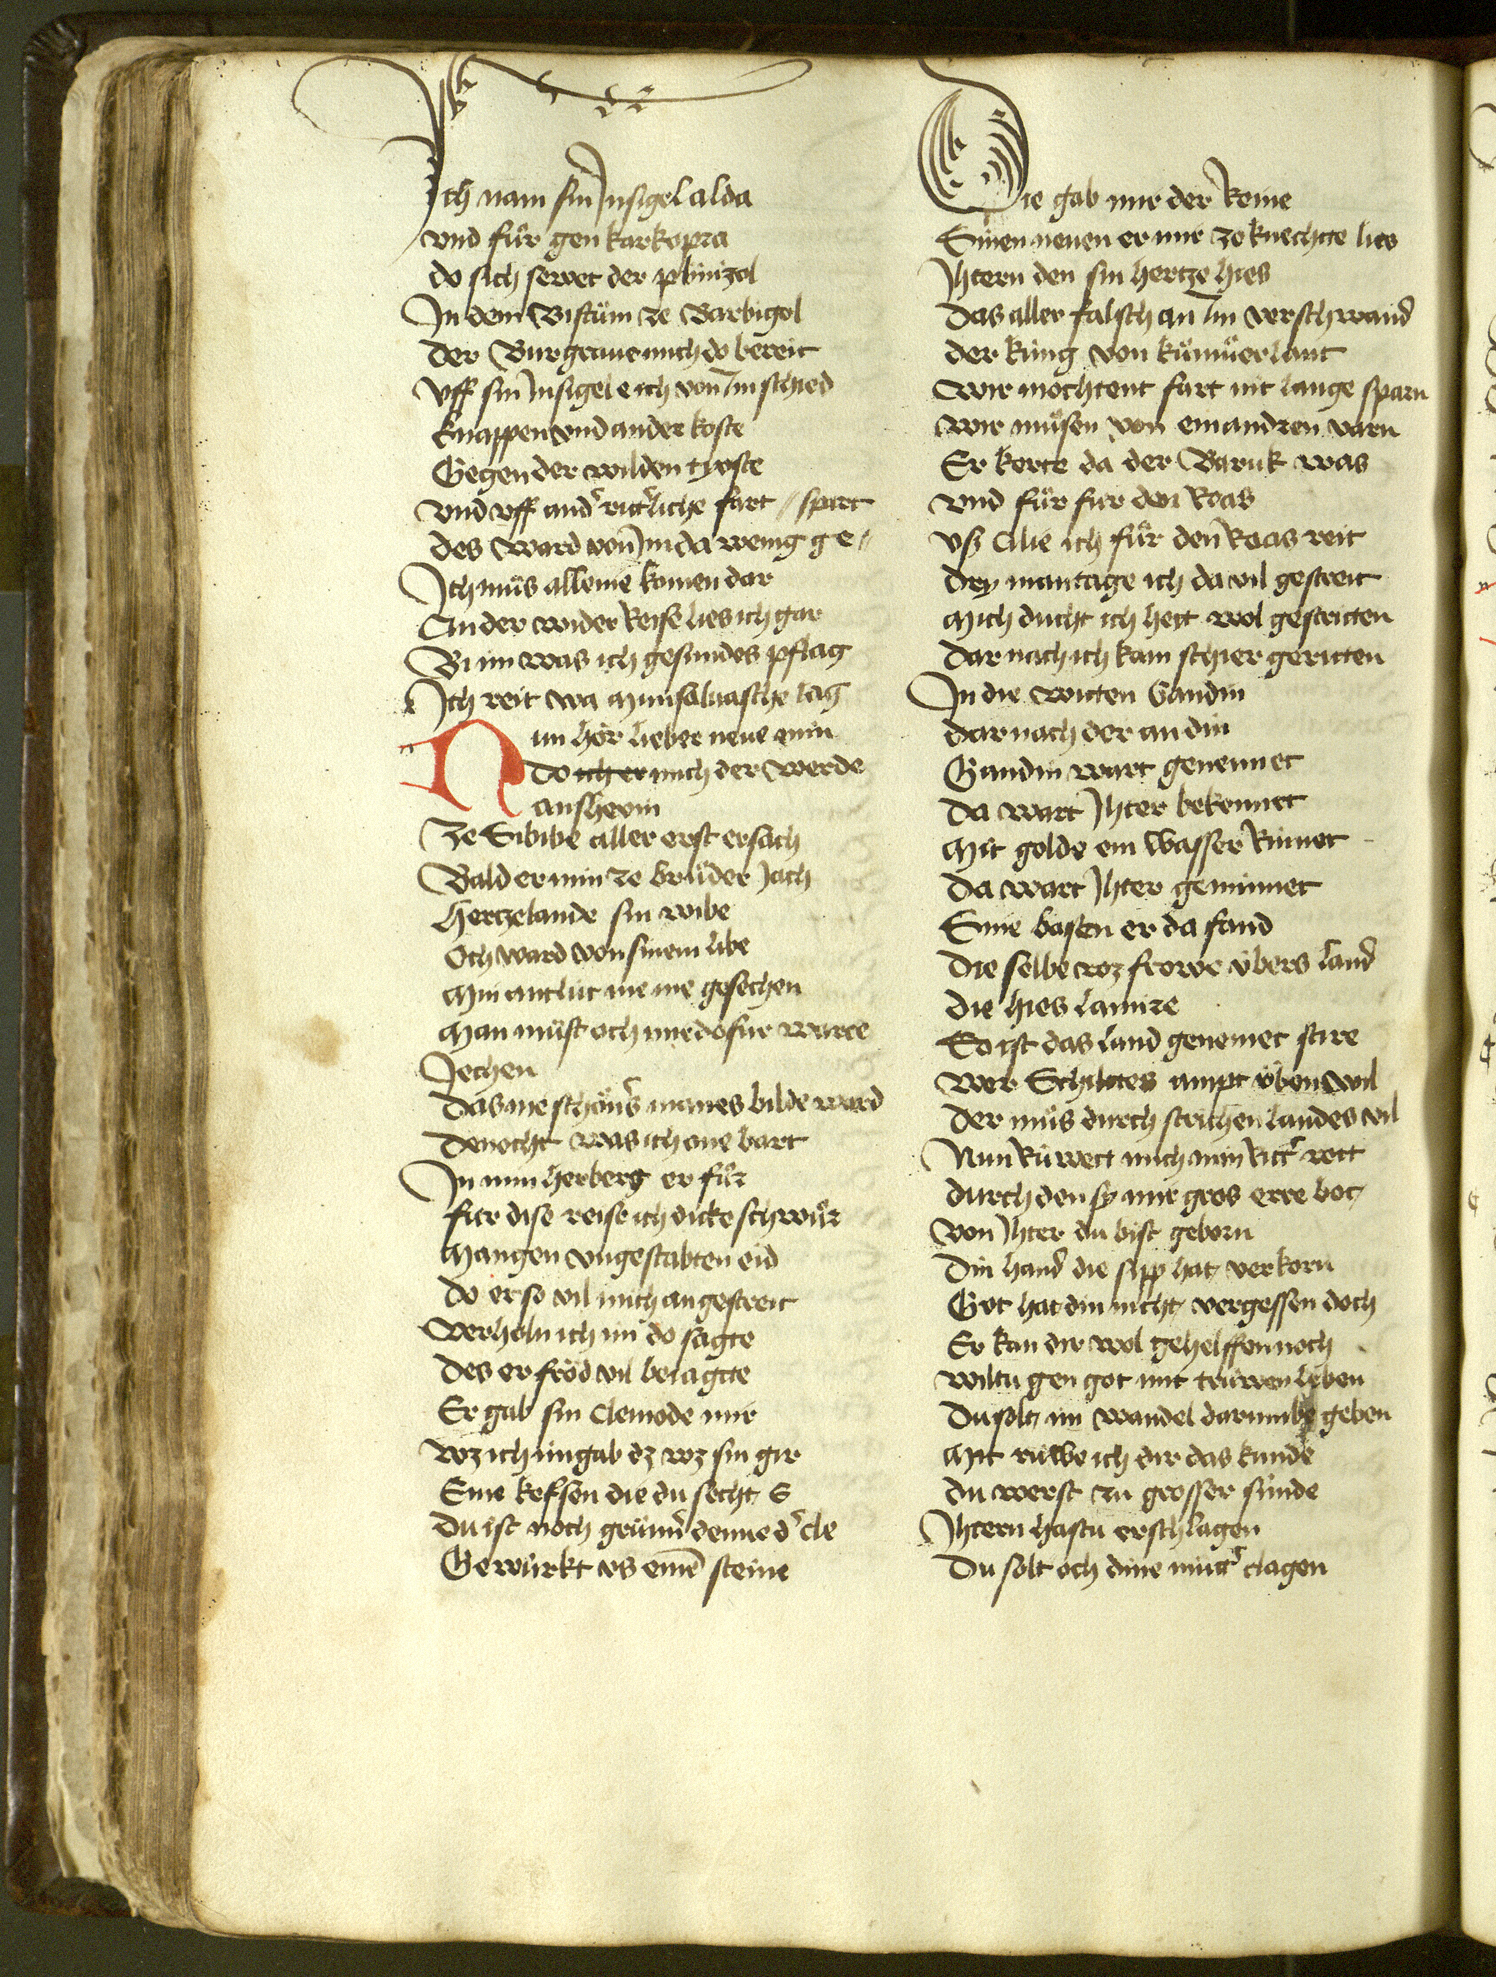 Ich nam sin Insigel alda
vnd für gen karkopra
do sich sewet der plimizol
In dem Bistüm ze Barbigol
Der Burgraue mich do bereit
Vff sin Insigel e ich von Im schied
knappen vnd ander koste
Gegen der wilden tyoste
vnd vff andͤr ritͤrliche fart // spart
des ward von Im da wenig ge //
Ich müs alleine komen dar
An der wider Reise lies ich gar
Bi im was ich gesindes pflag
Ich reit wa munsaluasche lag
Nun hör lieber neue min
Do ich er mich der werde
anshevin
Ze Sibibe aller erst ersach
Bald er min ze brüder Jach
Hertzelaude sin wibe
Och ward von sinem libe
Min antlüt nie me gesechen
Man müst och mir dofür warte
Jechen
Das nie schönͤs manes bilde ward
Denocht was ich one bart
In min herberg er für
Für dise reise ich dicke schwür
Mangen vngestabten eid
Do er so vil mich angestreit
Verholn ich im do sagte
Des er fröd vil beiagtte
Er gab sin cleinode mir
wz ich im gab dz wz sin gir
Eine kefsen die du secht E
Du ist noch grünͤ denne dͤ cle
Gewürkt vs einē steine
Die gab mir der Reine
Sinen neuen er mir ze knechtte lies
Ihtern den sin hertze hies
Das aller falsch an Im verschwand
der küng von kümüerlant
wir mochtent fart nit lange sparn
wir müsen von einandren varn
Er kerte da der Baruk was
vnd für für den Roas
vsz Cilie ich für den Roas reit
dry mantage ich da vil gestreit
Mich ducht ich hett wol gestritten
Dar nach ich kam schier geritten
In die witten Gandin
dar nach der an din
Gandin wart genennet
Da wart Ihter bekennet
Mit golde ein wasser Rinnet
Da wart Ihter geminnet
Sine basen er da fand
Die selbe wz frowe übers land
die hies lamire
So ist das land genemet stire
wer Schiltes ampt üben wil
der müs durch strichen landes vil
Nun Rüwett mich min Kitͤ rott
durch den sy mir gros erre bot
von Ihter du bist geborn
Din hand die sipp hat verkorn
Got hat din nicht vergessen doch
Er kan dir wol gehelffen noch
wiltu gen got mit trüwen leben
Du solt im wandel darumbe geben
Mit rüwe ich dir das künde
du werst zu grosser sünde
Ihtern hastu erschlagen
Du solt och dine mütͤ clagen